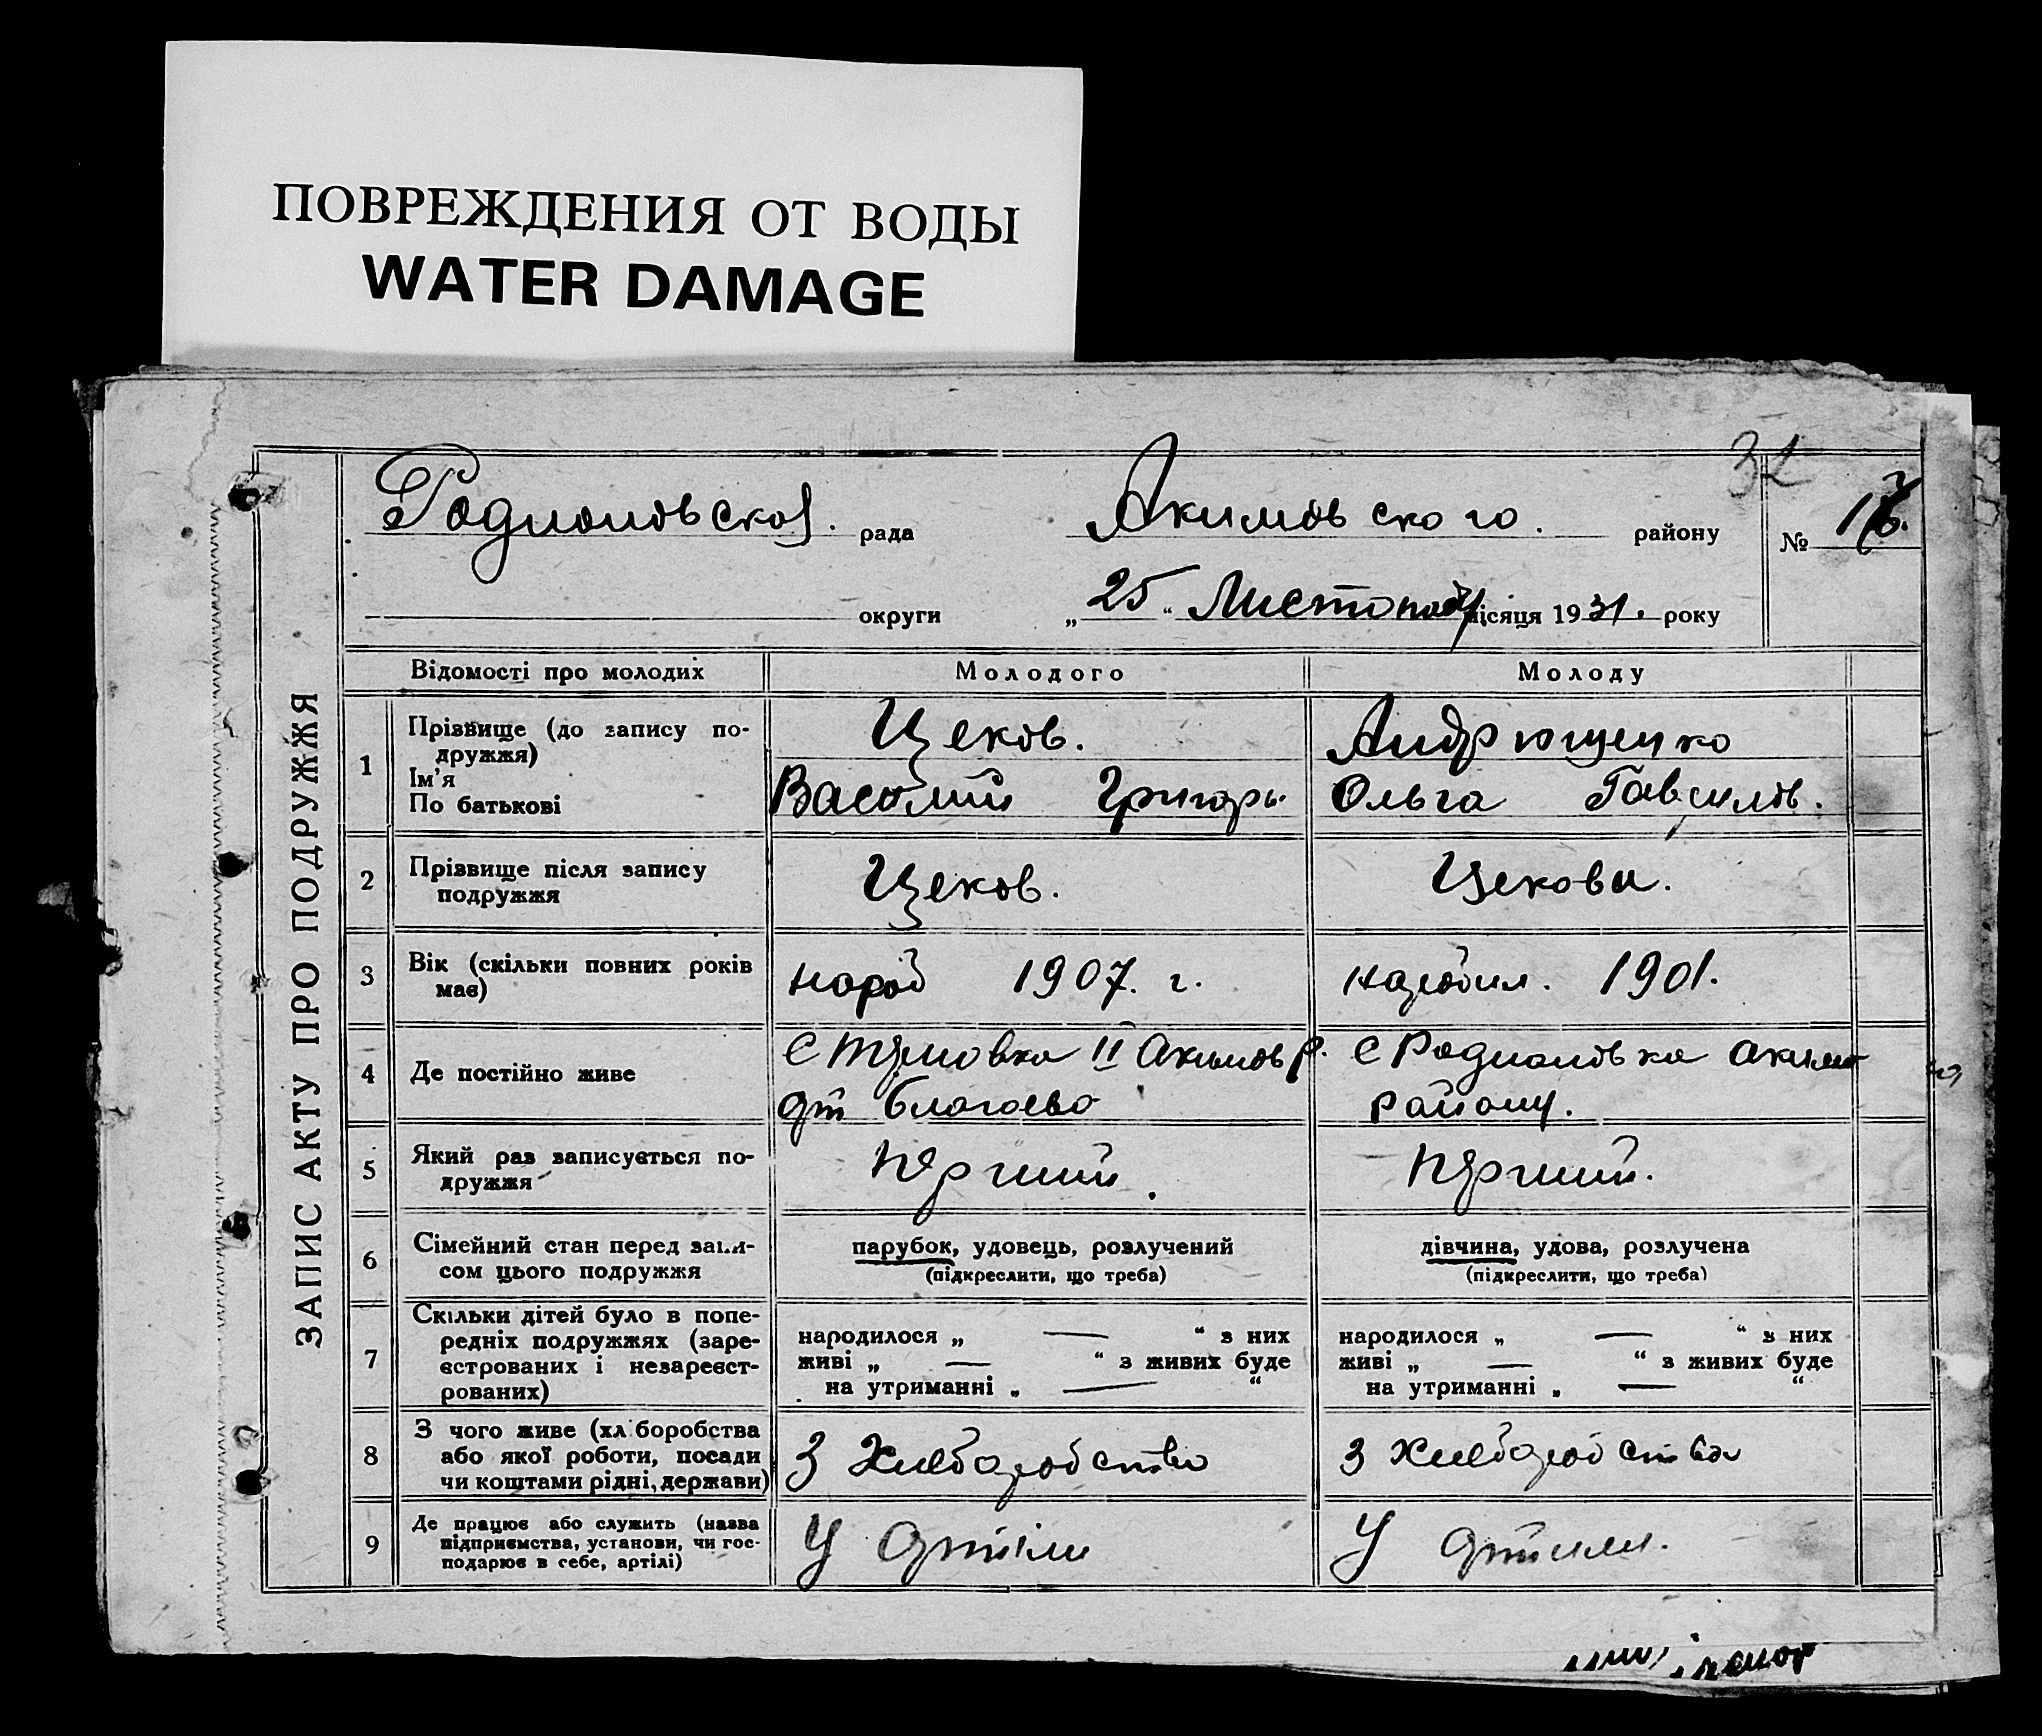 ПОВРЕЖДЕНИЯ ОТ ВОДЫ
WATER DAMAGE
32
Родионовской рада Акимовского. району № 17
округи „25“ Листопаду місяця 1931. року
ЗАПИС АКТУ ПРО ПОДРУЖЖЯ
Відомості про молодих Молодого Молоду
1 Прізвище (до запису по-
дружжя)
Ім'я
По батькові
Цеков.
Василий Григорь
Андрющенко
Ольга Гаврилов.
2 Прізвище після запису
подружжя
Цеков.
Цекова.
3 Вік (скільки повних років
має)
народ 1907. г.
народил. 1901.
4 Де постійно живе
С II Акимов р.
Благоево
С Родионовка Акимо
району.
5 Який раз записується по-
дружжя
перший.
перший.
6 Сімейний стан перед запи-
сом цього подружжя
парубок, удовець, розлучений
(підкреслити, що треба)
дівчина, удова, розлучена
(підкреслити, що треба)
7 Скільки дітей було в попе-
редніх подружжях (заре-
єстрованих і незареєст-
рованих)
народилося „ — “ з них
живі „ — “ з живих буде
на утриманні „ — “
народилося „ — “ з них
живі „ — “ з живих буде
на утриманні „ — “
8 З чого живе (хліборобства
або якої роботи, посади
чи коштами рідні, держави)
З Хлеборобства
З Хлеборобства
9 Де працює або служить (назва
підприємства, установи, чи гос-
подарює в себе, артілі)
У артіли
У артили.